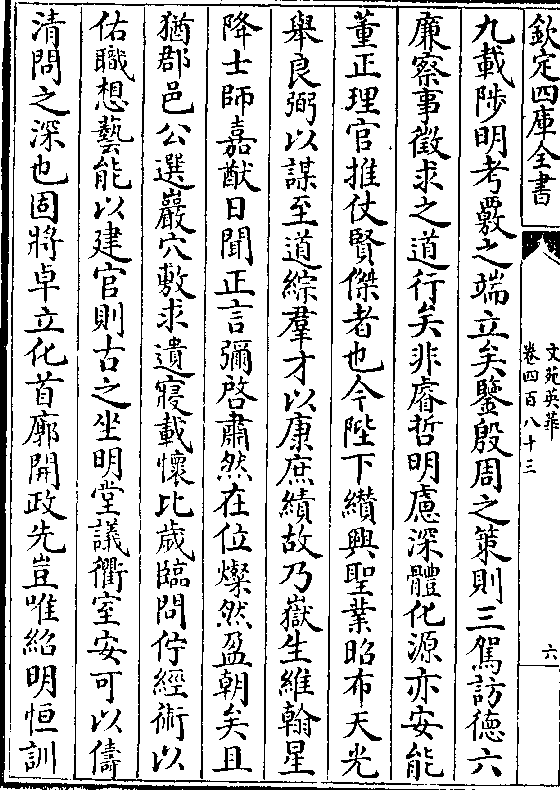 欽定四庫全書
文苑英華
卷四百八十三
六
九載陟明考覈之端立矣鑒殷周之策則三駕訪德六
廉察事徵求之道行矣非睿哲明慮深體化源亦安能
董正理官推仗賢傑者也今陛下纉興聖業昭布天光
舉良弼以謀至道綜羣才以康庶績故乃嶽生維翰星
降士師嘉猷日聞正言彌啓肅然在位燦然盈朝矣且
猶郡邑公選巖穴敷求遺寝載懷比歲臨問佇經術以
佑職想藝能以建官則古之坐明堂議衢室安可以儔
清問之深也固將卓立化首廓開政先豈唯紹明恒訓